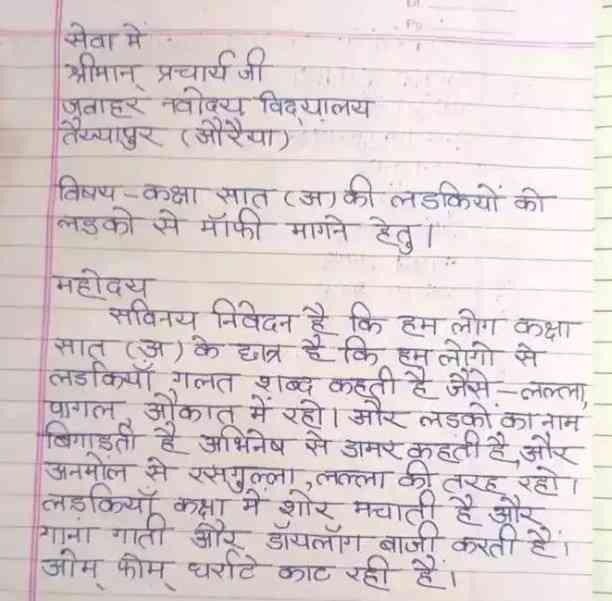 सेवा में
श्रीमान् प्रचार्य जी
जवाहर नवोदय विद्यालय
तैय्यापुर (औरैया)
विषय - कक्षा सात (अ) की लडकियों को
लडको से मॉफी मागने हेतु।
महोदय
सविनय निवेदन है कि हम लोग कक्षा
सात (अ) के छात्र है कि हम लोगो से
लडकियाँ गलत शब्द कहती है जैसे - लल्ला,
पागल, औकात में रहो। और लडकों का नाम
बिगाडती है अभिनेष से डामर कहती है, और
अनमोल से रसगुल्ला, लल्ला की तरह रहो।
लडकियाँ कक्षा में शोर मचाती है और
गाना गाती और डॉयलॉग बाजी करती हैं।
ओम् फोम् धर्राटे काट रही हैं।